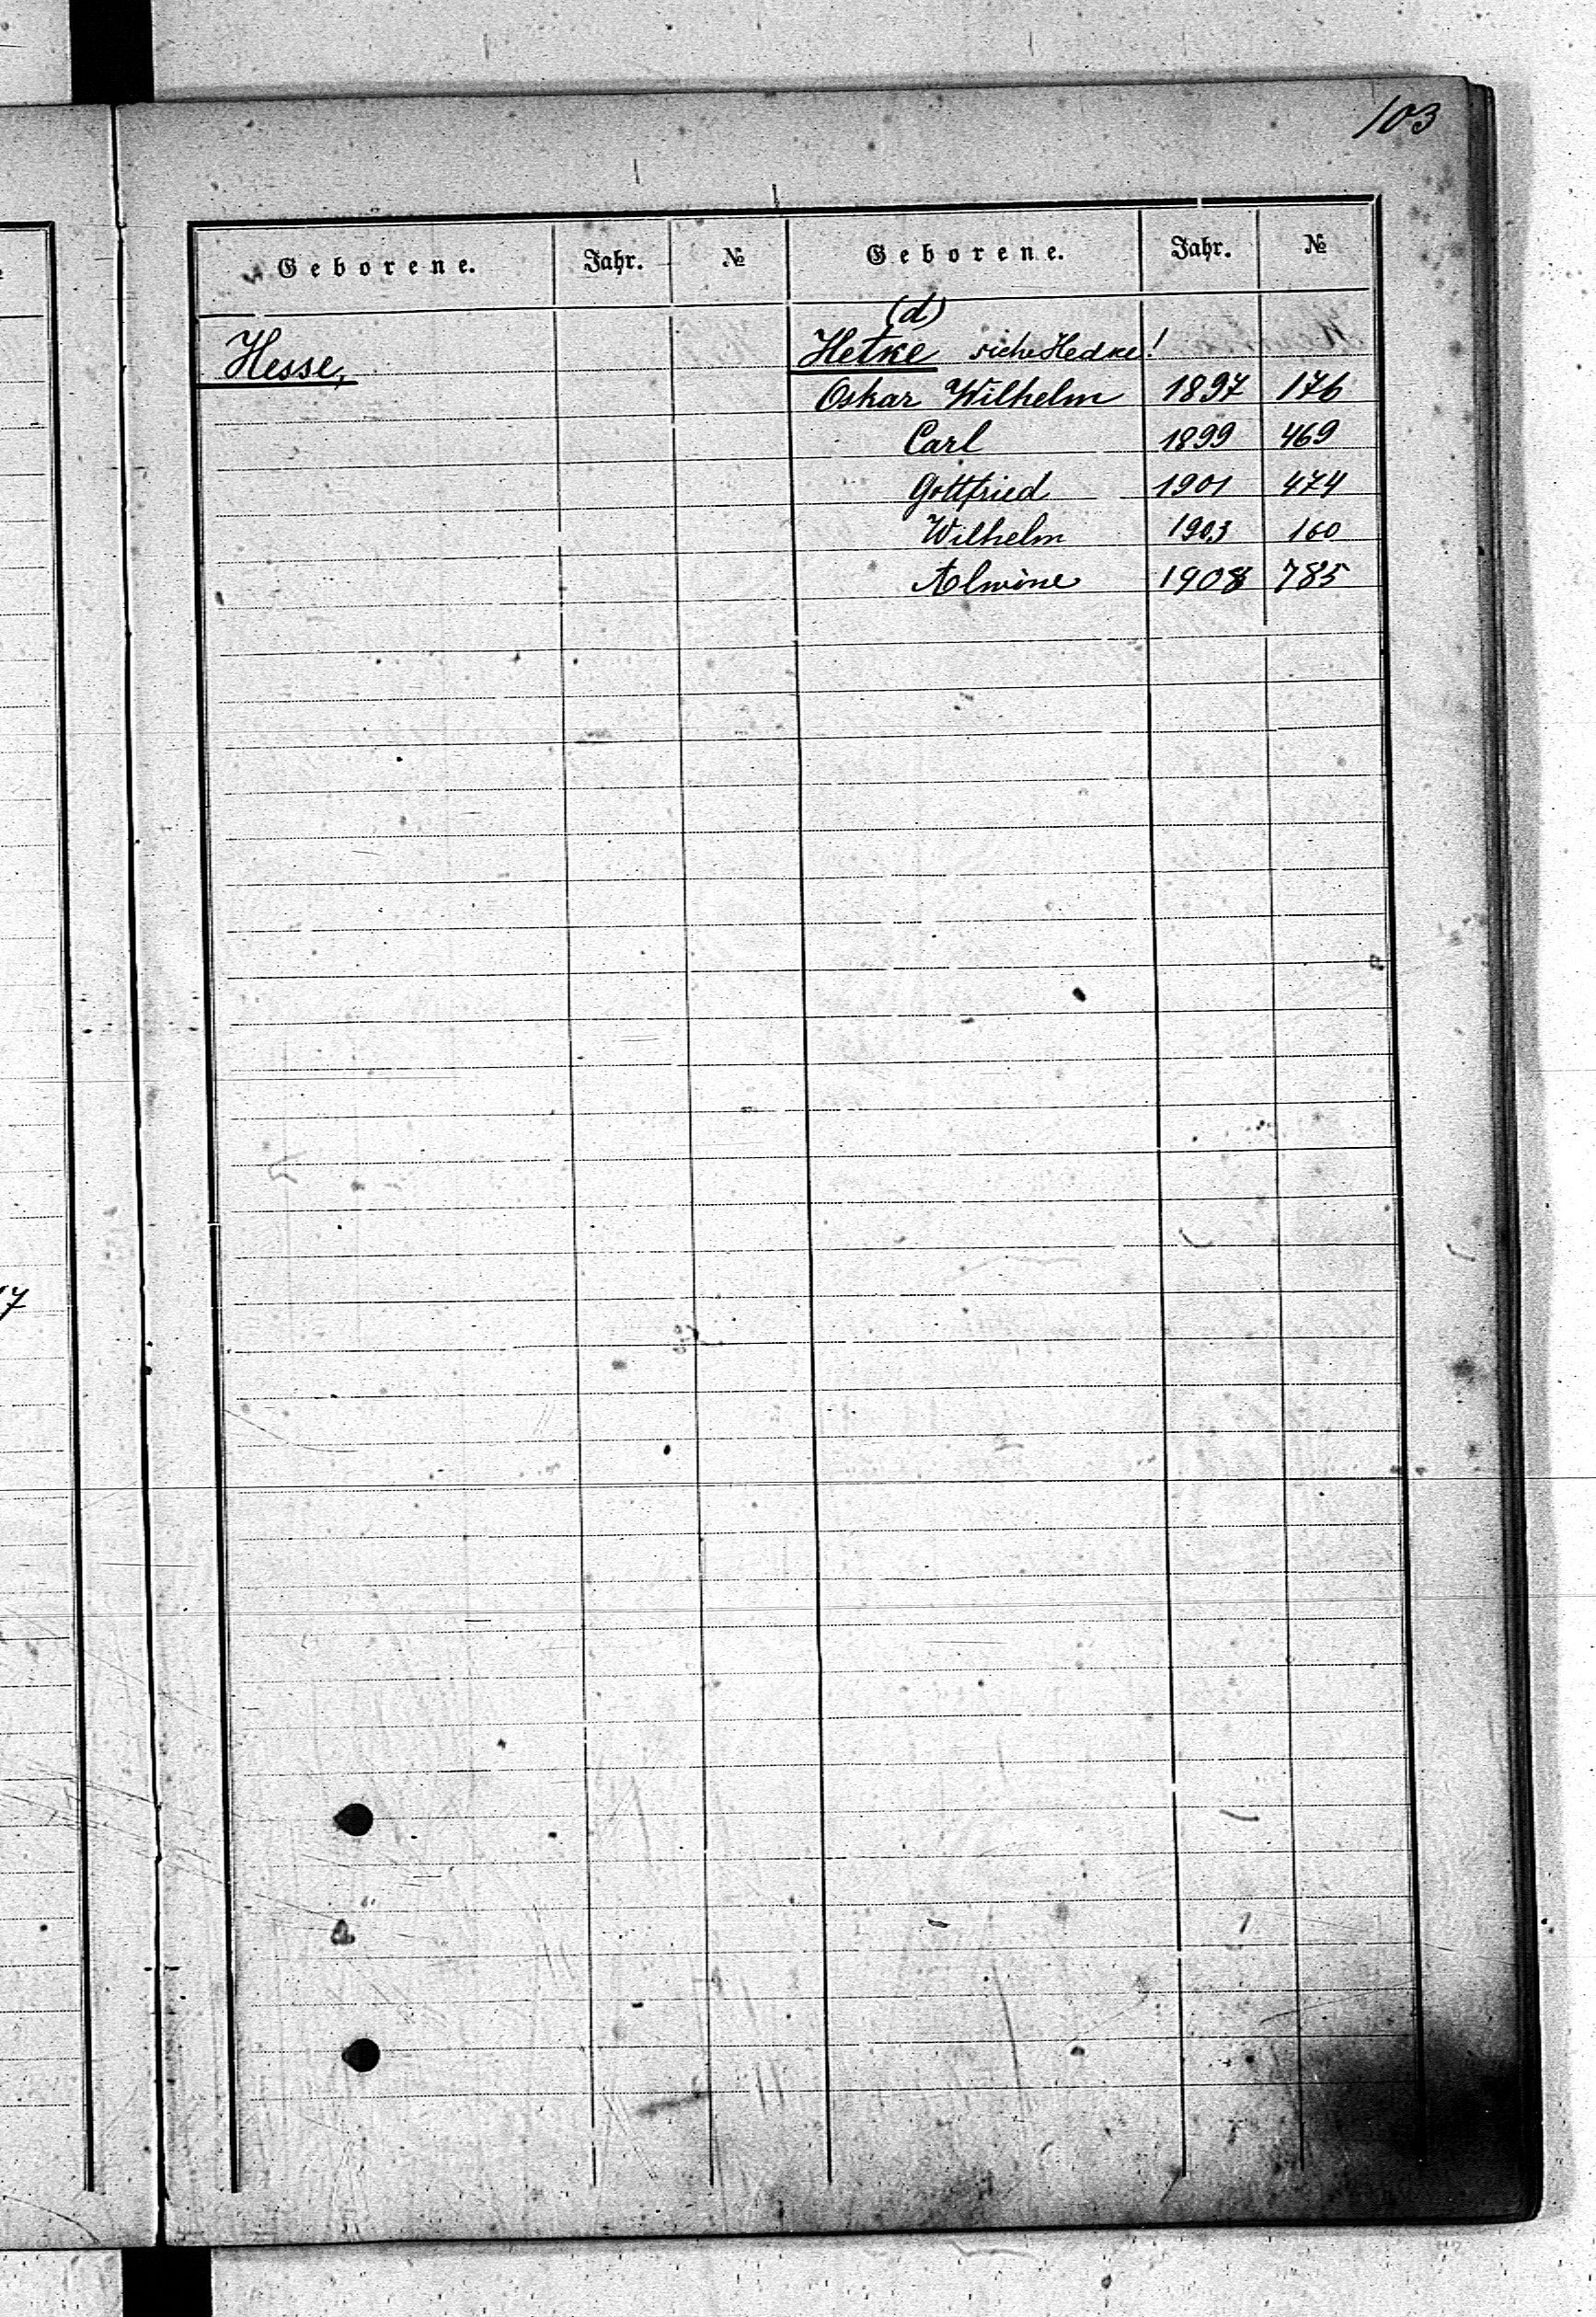 103
Geborene. Jahr. № Geborene. Jahr. №
Hesse,
(d)
Hetke siehe Hedke!
Oskar Wilhelm 1897 176
Carl 1899 469
Gottfried 1901 474
Wilhelm 1903 160
Alwine 1908 785